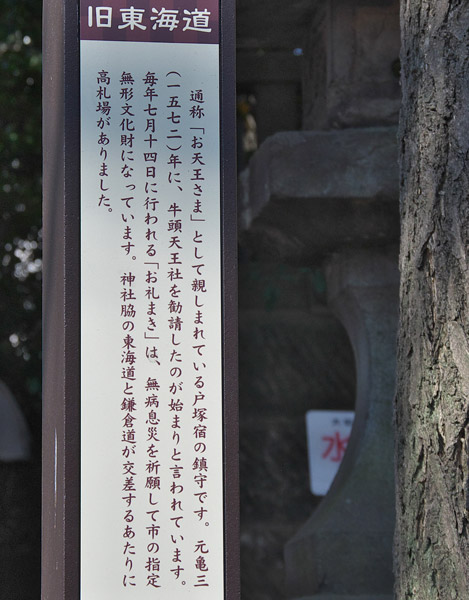 旧東海道
通称「お天王さま」として親しまれている戸塚宿の鎮守です。元亀三
(一五七二)年に、牛頭天王社を勧請したのが始まりと言われています。
毎年七月十四日に行われる「お礼まき」は、無病息災を祈願して市の指定
無形文化財になっています。神社脇の東海道と鎌倉道が交差するあたりに
高札場がありました。
水